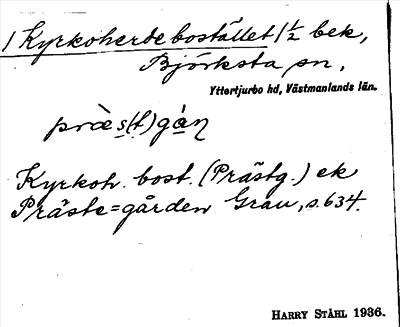 / Kyrkoherdebostället / 1/2 bek,
Björksta sn,
Yttertjurbo hd, Västmanlands län.
præ̀s(t)gȧ̀ɳ
Kyrkoh. bost. (Prästg.) ek
Präste=gården Grau, s. 634.
HARRY STÅHL 1936.